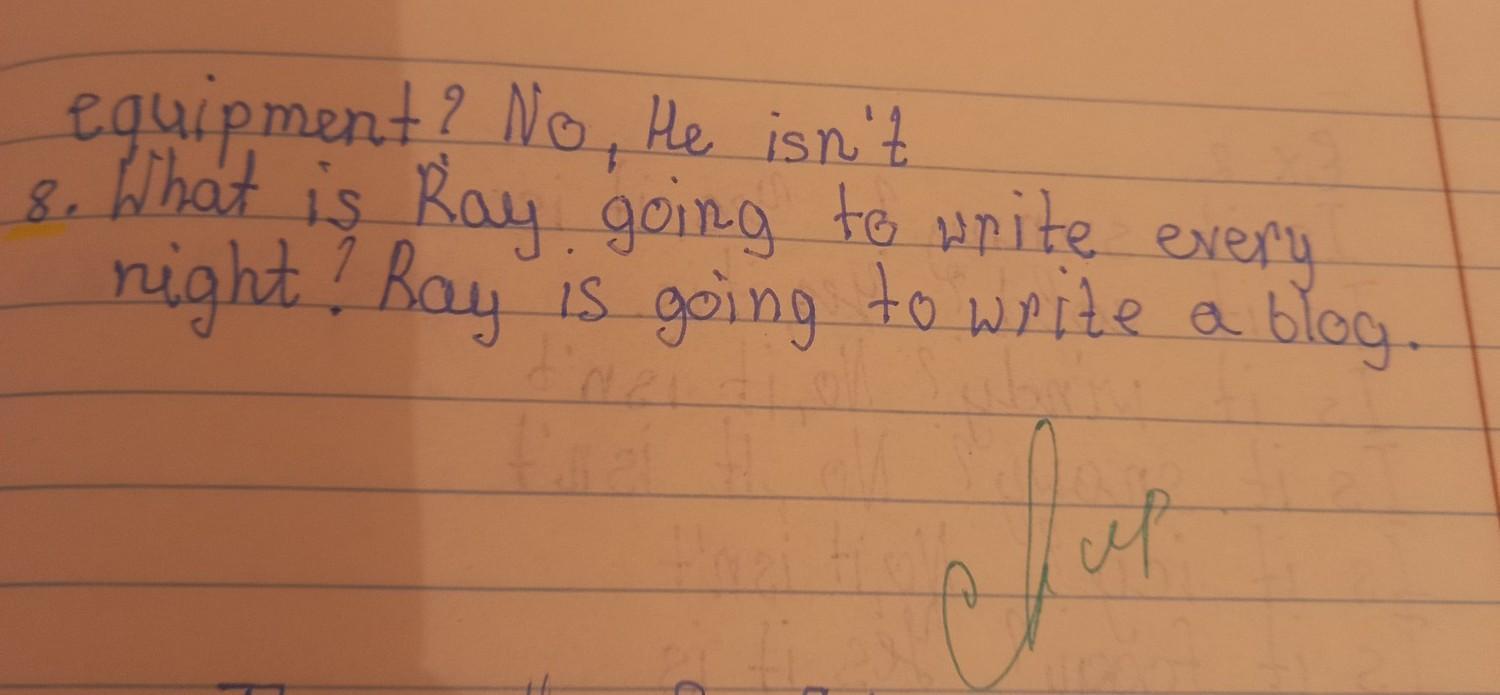 equipment? No, He isn't
8. What is Ray going to write every
night? Ray is going to write a blog.